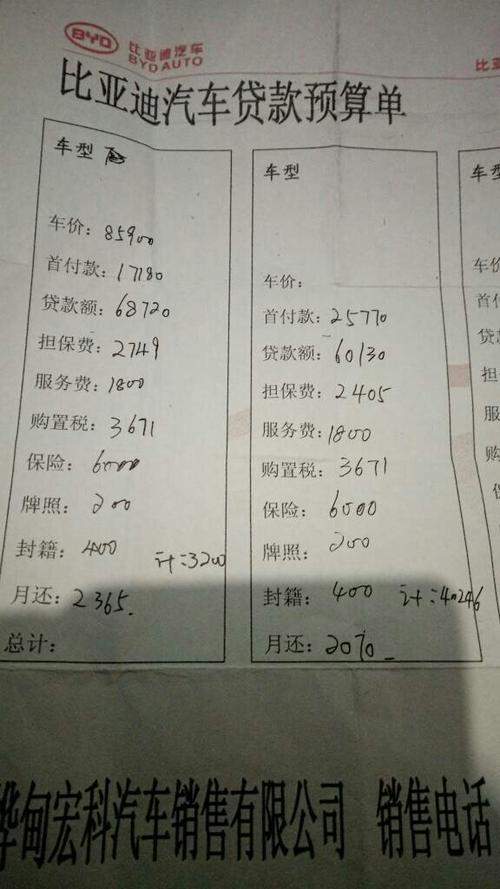 BYD 比亚迪汽车
BYD AUTO
比亚
比亚迪汽车贷款预算单
车型
车价: 85900
首付款: 17180
贷款额: 68720
担保费: 2749
服务费: 1800
购置税: 3671
保险: 6000
牌照: 200
封籍: 400 计:3200
月还: 2365
总计:
车型
车价:
首付款: 25770
贷款额: 60130
担保费: 2405
服务费: 1800
购置税: 3671
保险: 6000
牌照: 200
封籍: 400 计:40246
月还: 2070
车型
车价
首付
贷款
担
服
购
桦甸宏科汽车销售有限公司 销售电话